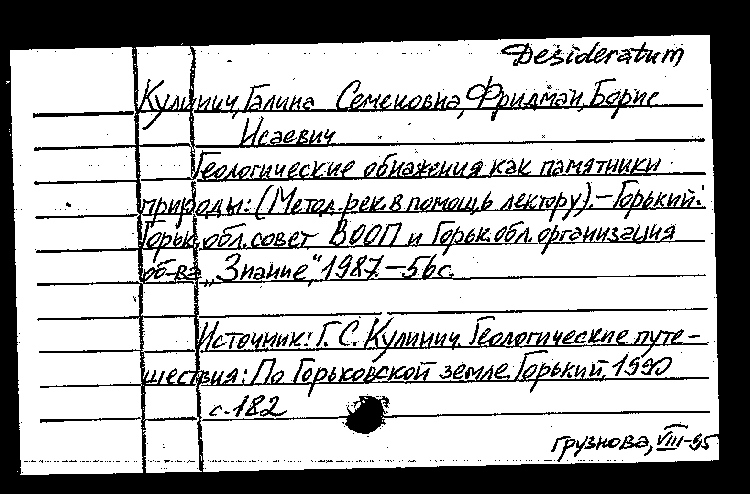 Desideratum
Кулинич, Галина Семеновна, Фридман, Борис
Исаевич
Геологические обнажения как памятники
природы: (Метод. рек. в помощь лектору). – Горький:
Горьк. обл. совет ВООП и Горьк. обл. организация
об-ва „Знание", 1987. – 56 с.
Источник: Г. С. Кулинич. Геологические путе-
шествия: По Горьковской земле. Горький, 1990
с. 182
Грузнова, VIII-95